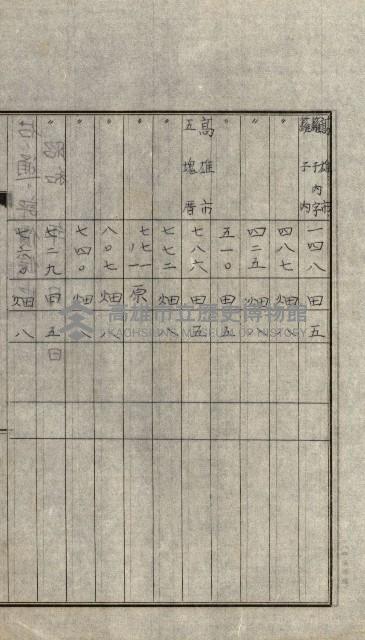 高雄市籬子内字籬子内 一四八 田 五
〃 四八七 畑
〃 四二五 畑
〃 五一〇 田 五
高雄市五塊厝 七八六 田 五
〃 七七二 畑 八
〃 七七一 原
〃 八〇七 畑 八
〃 七四〇 畑 八
〃 七二九 田 五
〃 畑 八
高雄市立歷史博物館
KAOHSIUNG MUSEUM OF HISTORY